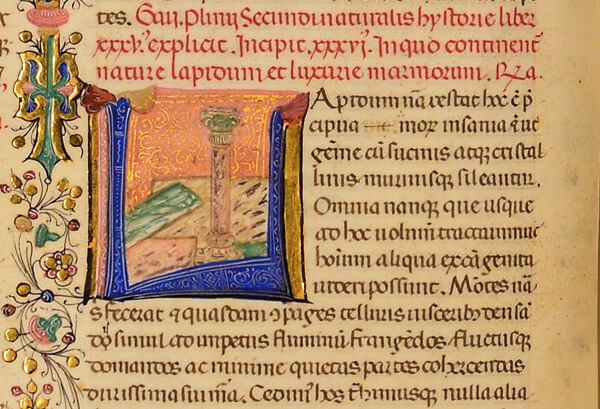 tes. Gaii. Plinij Secundi naturalis hystorie liber
xxxv. explicit. Incipit. xxxvi. In quo continent
nature lapidum et luxurie marmorum. Rƶa.
Lapidum nā restat hoc ē p̄
cipua morum insania ēut
gēme cū sucinis atq; cristal
linis murrinisq; sileantur.
Omnia nanque que usque
ad hoc uolumē tractauimus
hominū aliqua excā genita
uideri possint. Mōtes nā
s fecerat quasdam ɔpages telluris uisceribꝰ densā
dis simul ad impetus fluminū frangēdos fluctusq;
domandos ac minime quietas partes cohercendas
durissima sui mā. Cedimꝰ hos thimusque nulla alia